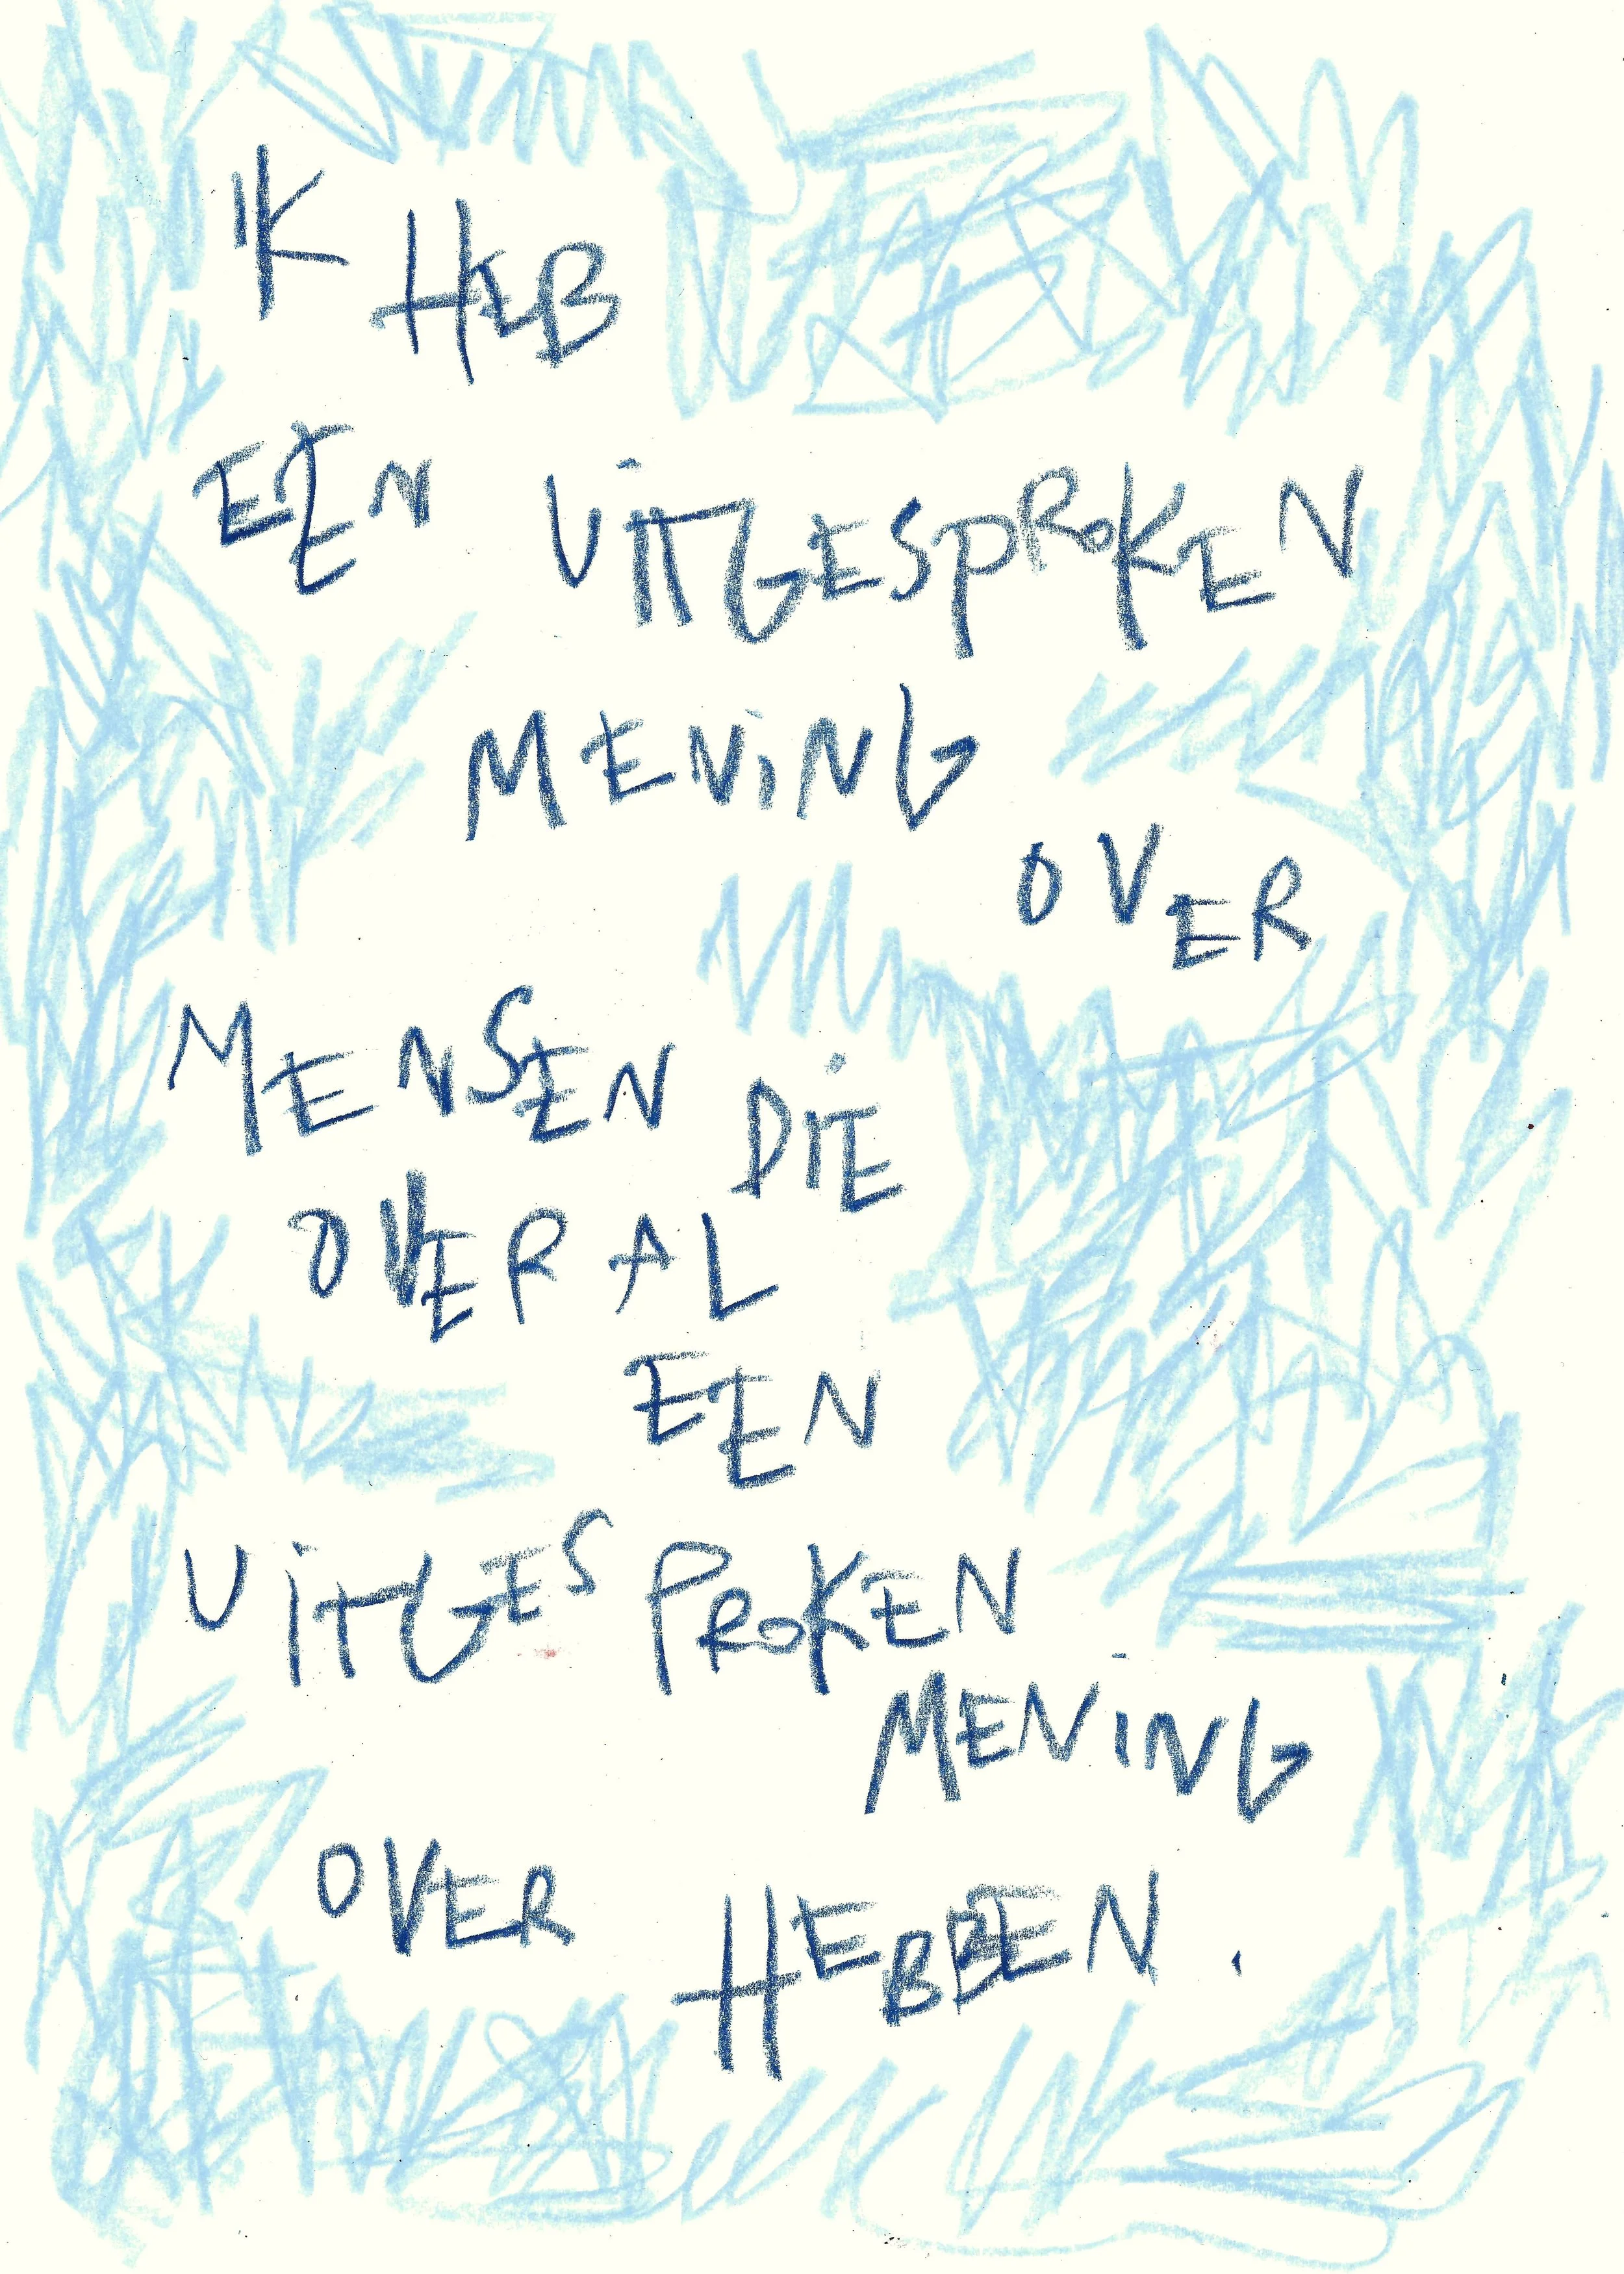 IK HEB
EEN UITGESPROKEN
MENING
OVER
MENSEN DIE
OVERAL
EEN
UITGESPROKEN
MENING
OVER HEBBEN.